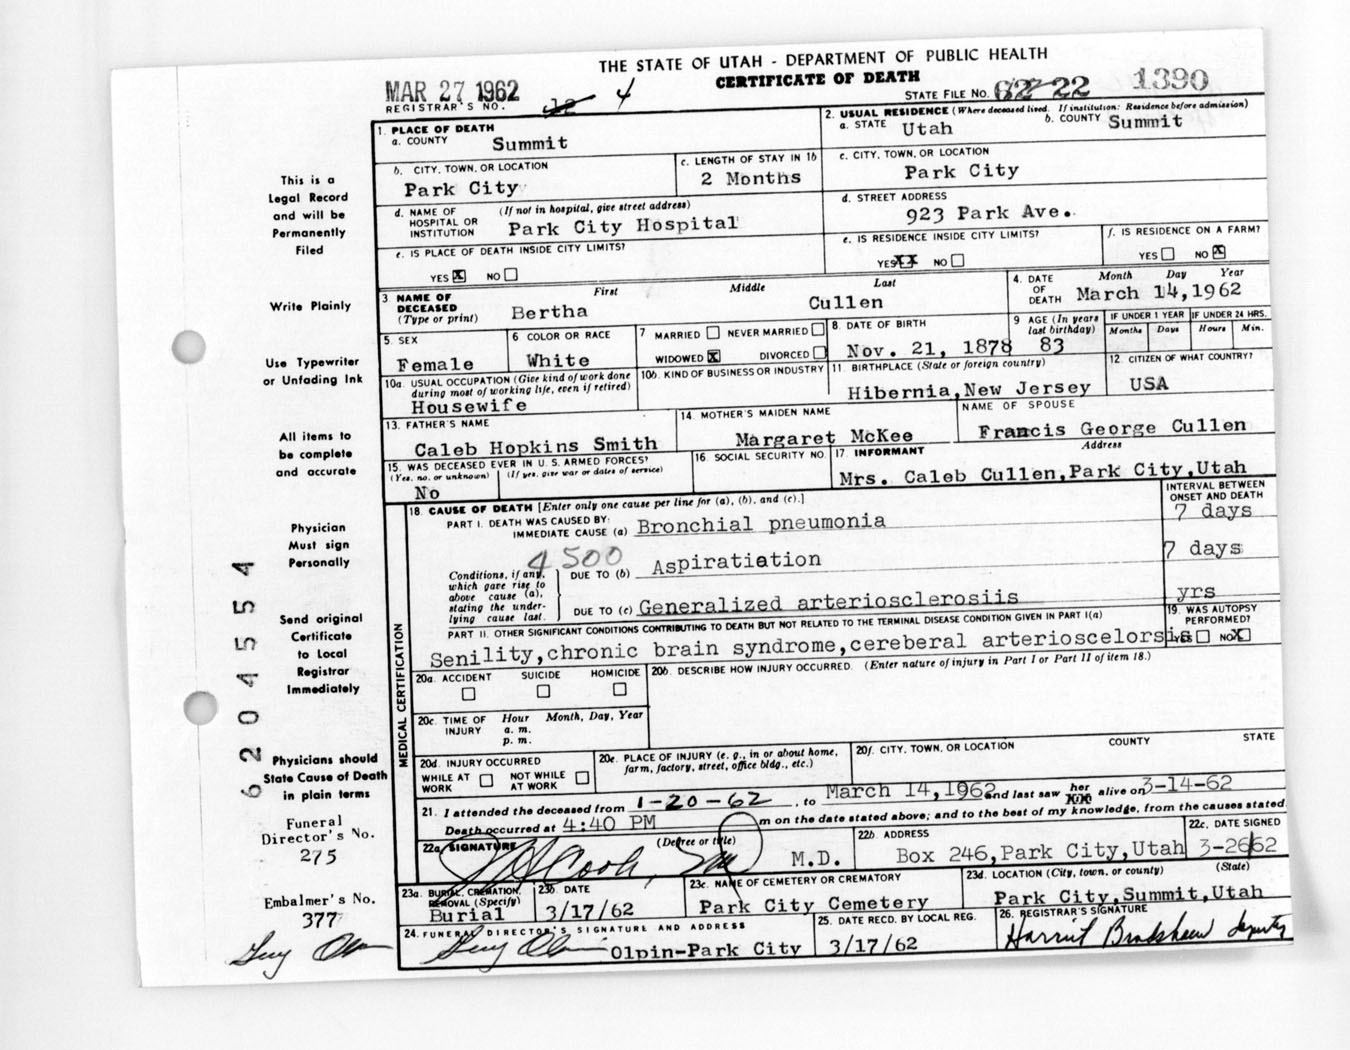 THE STATE OF UTAH - DEPARTMENT OF PUBLIC HEALTH
CERTIFICATE OF DEATH
MAR 27 1962
REGISTRAR'S NO. 12 4
STATE FILE NO. 62 22 1390
This is a
Legal Record
and will be
Permanently
Filed
Write Plainly
Use Typewriter
or Unfading Ink
All items to
be complete
and accurate
Physician
Must sign
Personally
Send original
Certificate
to Local
Registrar
Immediately
Physicians should
State Cause of Death
in plain terms
Funeral
Director's No.
275
Embalmer's No.
377
6204554
1. PLACE OF DEATH
a. COUNTY Summit
2. USUAL RESIDENCE (Where deceased lived. If institution: Residence before admission)
a. STATE Utah b. COUNTY Summit
b. CITY, TOWN, OR LOCATION
Park City
c. LENGTH OF STAY IN 1b
2 Months
c. CITY, TOWN, OR LOCATION
Park City
d. NAME OF HOSPITAL OR INSTITUTION (If not in hospital, give street address)
Park City Hospital
d. STREET ADDRESS
923 Park Ave.
e. IS PLACE OF DEATH INSIDE CITY LIMITS?
YES X NO
e. IS RESIDENCE INSIDE CITY LIMITS?
YES XX NO
f. IS RESIDENCE ON A FARM?
YES NO X
3 NAME OF DECEASED (Type or print) First Middle Last
Bertha Cullen
4. DATE OF DEATH Month Day Year
March 14,1962
5. SEX
Female
6 COLOR OR RACE
White
7 MARRIED NEVER MARRIED
WIDOWED X DIVORCED
8. DATE OF BIRTH
Nov. 21, 1878
9 AGE (In years last birthday)
83
IF UNDER 1 YEAR IF UNDER 24 HRS.
Months Days Hours Min.
10a. USUAL OCCUPATION (Give kind of work done during most of working life, even if retired)
Housewife
10b. KIND OF BUSINESS OR INDUSTRY
11. BIRTHPLACE (State or foreign country)
Hibernia,New Jersey
12. CITIZEN OF WHAT COUNTRY?
USA
13. FATHER'S NAME
Caleb Hopkins Smith
14. MOTHER'S MAIDEN NAME
Margaret McKee
NAME OF SPOUSE
Francis George Cullen
15. WAS DECEASED EVER IN U. S. ARMED FORCES?
(Yes, no, or unknown) (If yes, give war or dates of service)
No
16. SOCIAL SECURITY NO.
17. INFORMANT Address
Mrs. Caleb Cullen,Park City,Utah
MEDICAL CERTIFICATION
18. CAUSE OF DEATH [Enter only one cause per line for (a), (b), and (c).]
INTERVAL BETWEEN ONSET AND DEATH
PART I. DEATH WAS CAUSED BY:
IMMEDIATE CAUSE (a) Bronchial pneumonia 7 days
4500
Conditions, if any, which gave rise to above cause (a), stating the underlying cause last.
DUE TO (b) Aspiratiation 7 days
DUE TO (c) Generalized arteriosclerosiis yrs
PART II. OTHER SIGNIFICANT CONDITIONS CONTRIBUTING TO DEATH BUT NOT RELATED TO THE TERMINAL DISEASE CONDITION GIVEN IN PART I(a)
Senility,chronic brain syndrome,cereberal arterioscelorsis
19. WAS AUTOPSY PERFORMED?
YES NO X
20a. ACCIDENT SUICIDE HOMICIDE
20b. DESCRIBE HOW INJURY OCCURRED. (Enter nature of injury in Part I or Part II of item 18.)
20c. TIME OF INJURY Hour Month, Day, Year
a. m.
p. m.
20d. INJURY OCCURRED
WHILE AT WORK NOT WHILE AT WORK
20e. PLACE OF INJURY (e. g., in or about home, farm, factory, street, office bldg., etc.)
20f. CITY, TOWN, OR LOCATION COUNTY STATE
21. I attended the deceased from 1-20-62, to March 14,1962 and last saw her alive on 3-14-62
Death occurred at 4:40 PM m on the date stated above; and to the best of my knowledge, from the causes stated.
22a. SIGNATURE (Degree or title)
M.D.
22b. ADDRESS
Box 246,Park City,Utah
22c. DATE SIGNED
3-26/62
23a. BURIAL, CREMATION, REMOVAL (Specify)
Burial
23b. DATE
3/17/62
23c. NAME OF CEMETERY OR CREMATORY
Park City Cemetery
23d. LOCATION (City, town, or county) (State)
Park City,Summit,Utah
24. FUNERAL DIRECTOR'S SIGNATURE AND ADDRESS
Olpin-Park City
25. DATE RECD. BY LOCAL REG.
3/17/62
26. REGISTRAR'S SIGNATURE
Harriet Bradshaw deputy